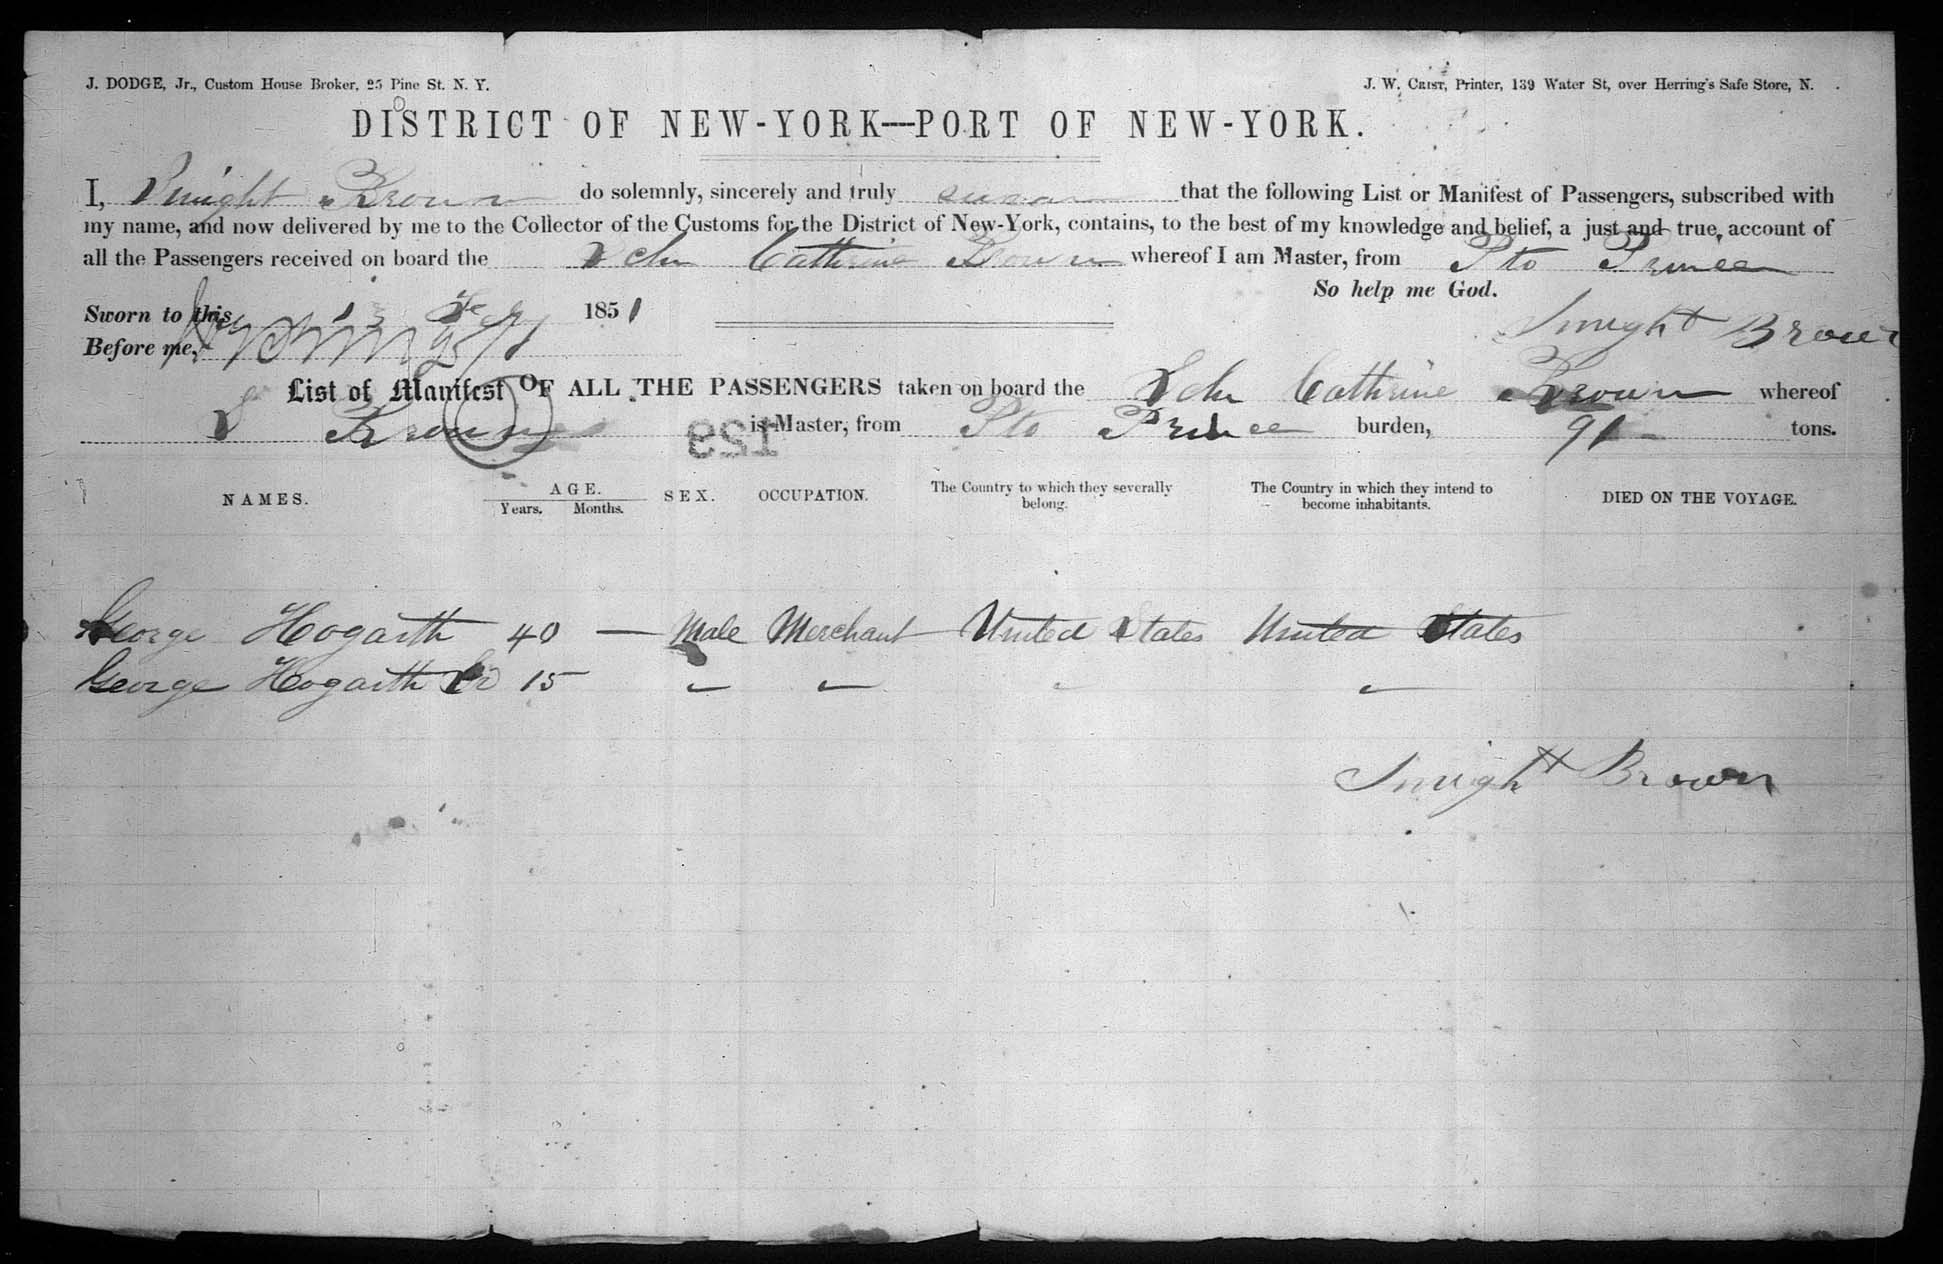 J. DODGE, Jr., Custom House Broker, 25 Pine St. N. Y.
J. W. CRIST, Printer, 139 Water St, over Herring's Safe Store, N.
DISTRICT OF NEW-YORK—PORT OF NEW-YORK.
I, Dwight Brown do solemnly, sincerely and truly swear that the following List or Manifest of Passengers, subscribed with
my name, and now delivered by me to the Collector of the Customs for the District of New-York, contains, to the best of my knowledge and belief, a just and true account of
all the Passengers received on board the Schr Cathrine Brown whereof I am Master, from Pto Prince
So help me God.
Sworn to this 13 1851
Before me,
Dwight Brown
List of Manifest OF ALL THE PASSENGERS taken on board the Schr Cathrine Brown whereof
D Brown is Master, from Pto Prince burden, 91 tons.
129
NAMES. AGE. SEX. OCCUPATION. The Country to which they severally belong. The Country in which they intend to become inhabitants. DIED ON THE VOYAGE.
Years. Months.
George Hogarth 40 — Male Merchant United States United States
George Hogarth Jr 15 " " " "
Dwight Brown